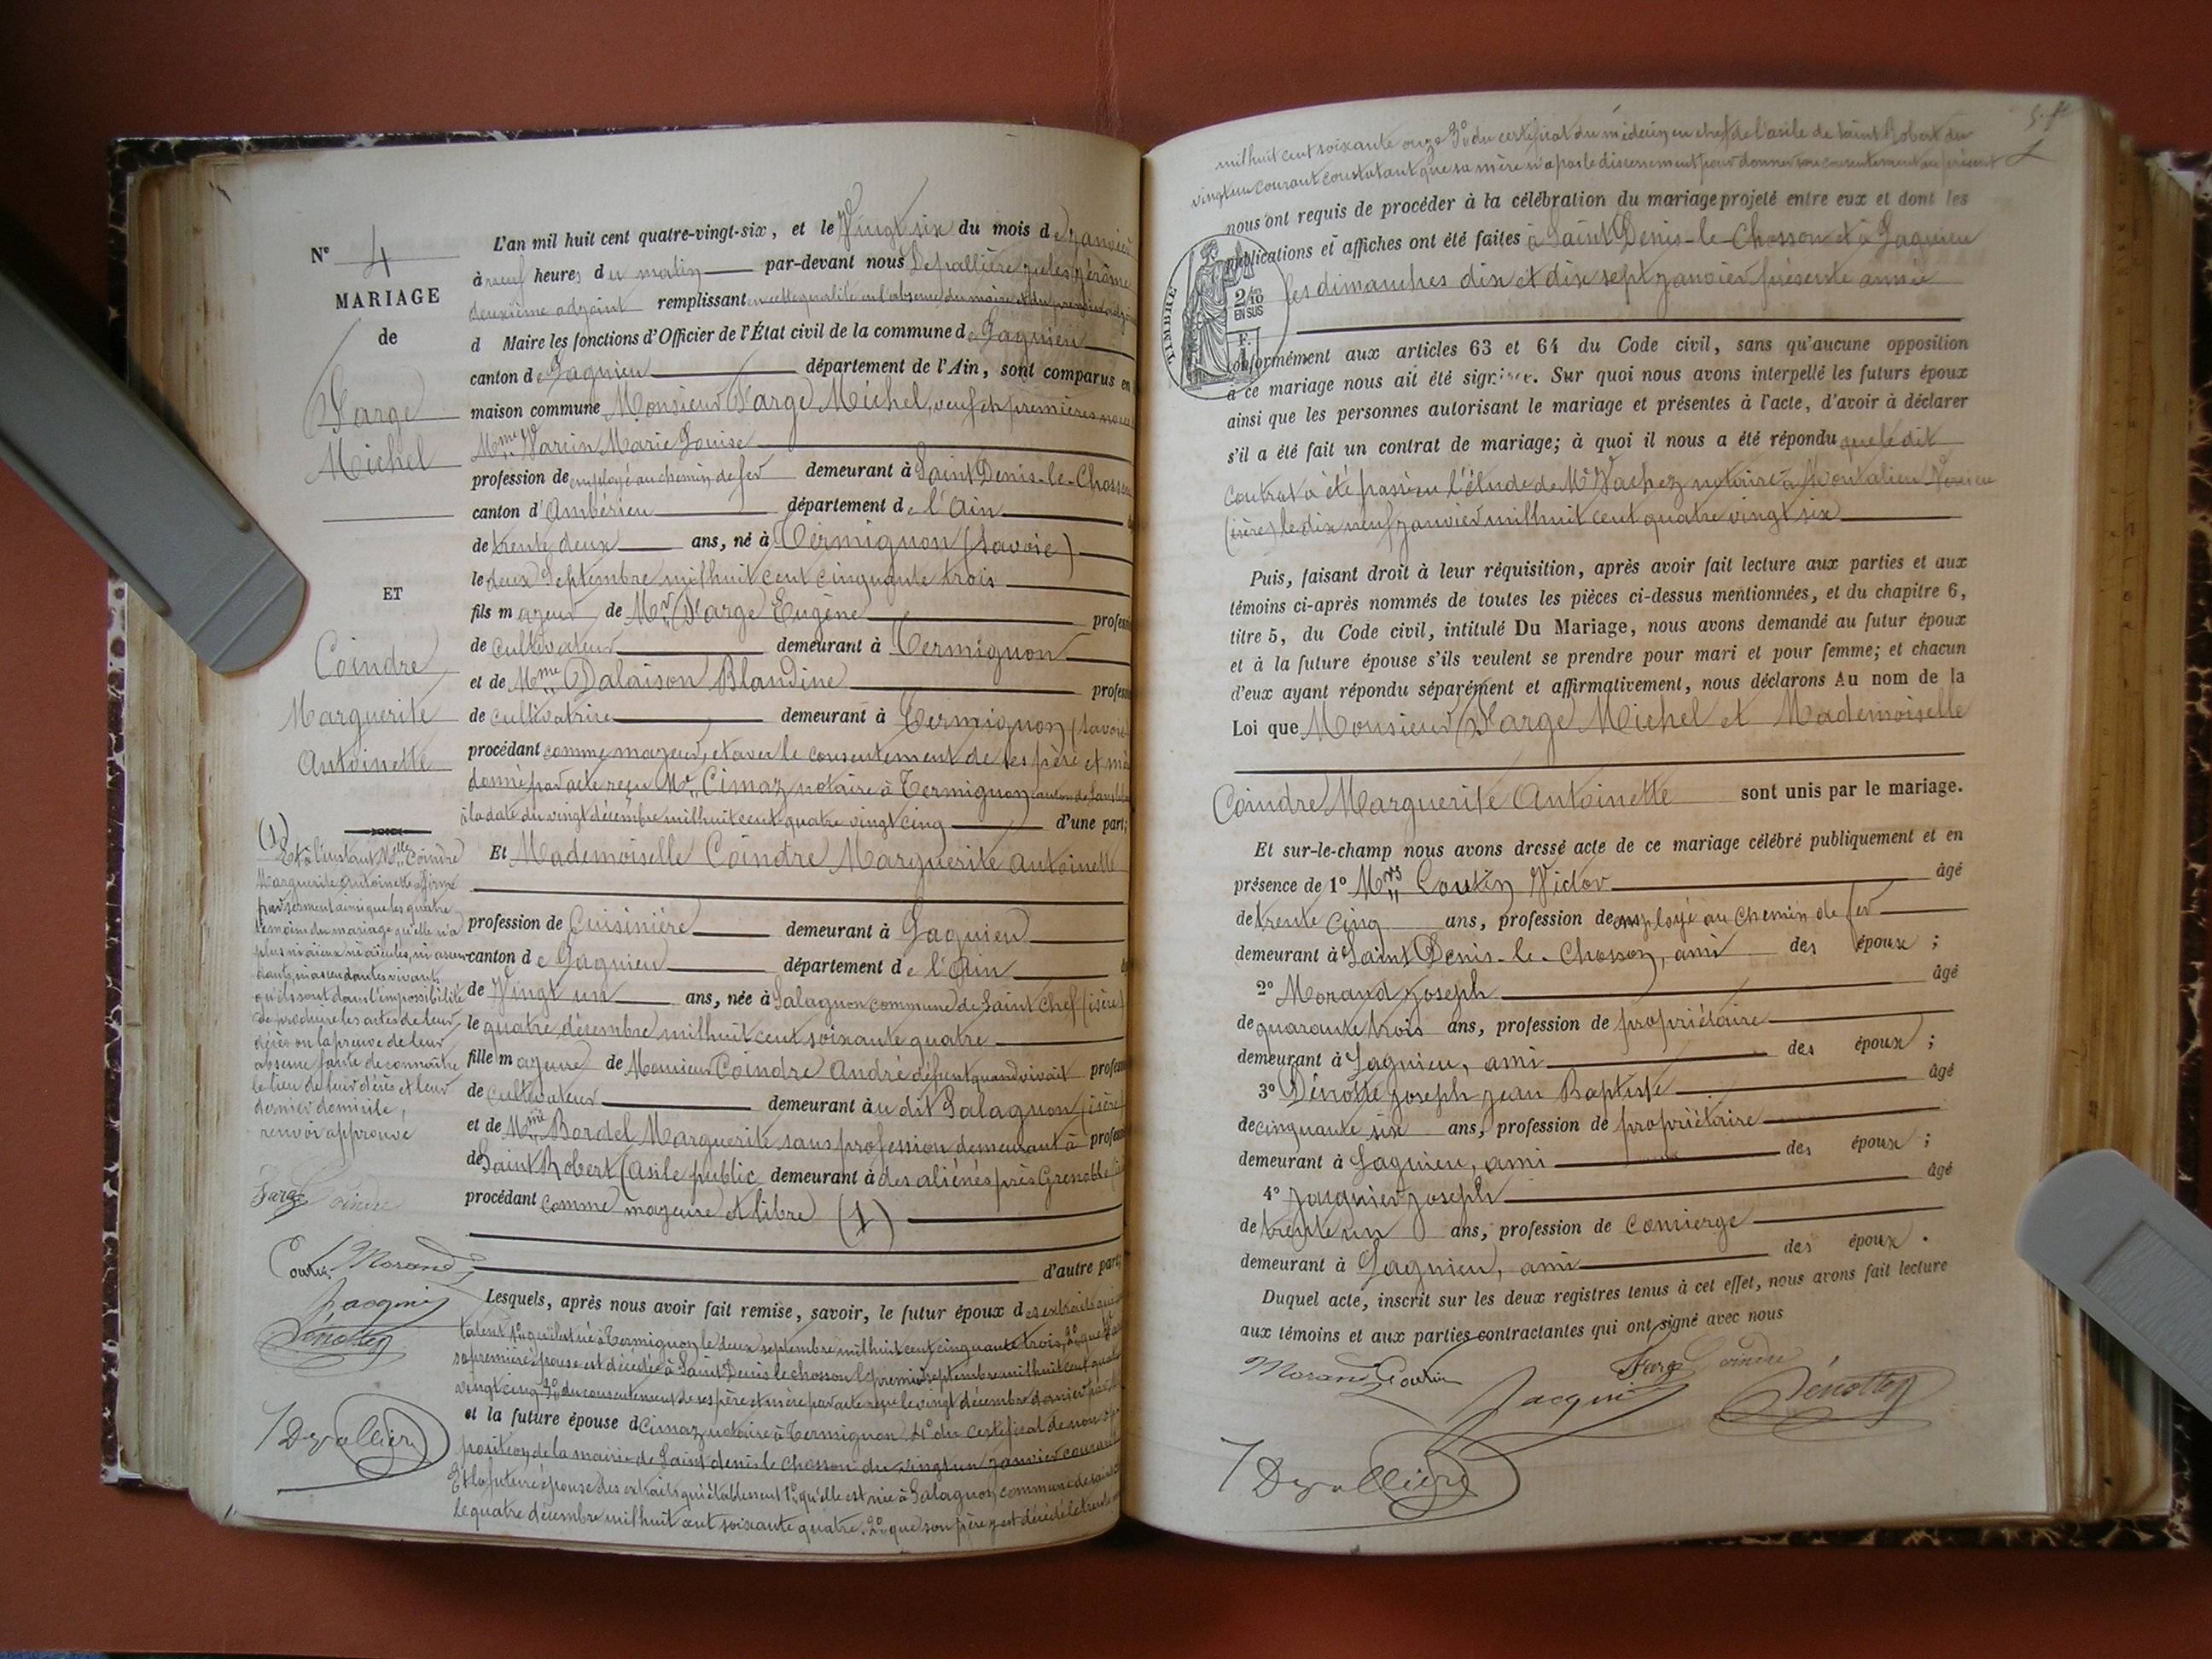 N° 4
MARIAGE
de
Farge
Michel
ET
Coindre
Marguerite
Antoinette
(1)
Et à l'instant Melle Coindre
Marguerite Antoinette affirme
par serment ainsi que les quatre
témoins du mariage qu'elle n'a
plus ni aïeux ni aïeules, ni ascen
dants, ni ascendantes vivants,
qu'ils sont dans l'impossibilité
de produire les actes de leur
décès ou la preuve de leur
absence faute de connaître
le lieu de leur décès et leur
dernier domicile,
renvoi approuvé
Farge Coindre
Coutin Morand
Jacquier
Dénotte
L'an mil huit cent quatre-vingt-six, et le Vingt six du mois de janvier
à neuf heures du matin par-devant nous Depallière jules jérôme
deuxième adjoint remplissant en cette qualité en l'absence du maire et du premier adjoint
d Maire les fonctions d'Officier de l'État civil de la commune de Lagnieu
canton de Lagnieu département de l'Ain, sont comparus en
maison commune Monsieur Farge Michel, veuf en premières noces
Mme Varcin Marie Louise
profession de employé au chemin de fer demeurant à Saint Denis-le-Chosson
canton d'Ambérieu département de l'Ain
de trente deux ans, né à Termignon (Savoie)
le deux Septembre mil huit cent cinquante trois
fils majeur de Mr Farge Eugène profess
de cultivateur demeurant à Termignon
et de Mme Dalaison Blandine profess
de cultivatrice demeurant à Termignon (Savoie
procédant comme majeur, et avec le consentement de ses père et mère
donné par acte reçu Mr Cimaz notaire à Termignon canton de Lanslebourg
à la date du vingt décembre mil huit cent quatre vingt cinq d'une part;
Et Mademoiselle Coindre Marguerite Antoinette
profession de Cuisinière demeurant à Lagnieu
canton de Lagnieu département de l'Ain
de Vingt un ans, née à Salagnon commune de Saint Chef (isère)
le quatre décembre mil huit cent soixante quatre
fille majeure de Monsieur Coindre André défunt quand vivait profess
de Cultivateur demeurant à u dit Salagnon (isère)
et de Mme Bordel Marguerite sans profession demeurant à profess
de Saint Robert (asile public demeurant à des aliénés près Grenoble
procédant comme majeure et libre (1)
d'autre part;
Lesquels, après nous avoir fait remise, savoir, le futur époux des extraits qui cons
tatent 1° qu'il est né à Termignon le deux septembre mil huit cent cinquante trois, 2° que
sa première épouse est décédée à Saint Denis le chosson le premier septembre mil huit cent quatre
vingt cinq 3° du consentement de ses père et mère par acte reçu le vingt décembre dernier par
et la future épouse d Cimaz notaire à Termignon 4° du certificat de non op
position de la mairie de Saint denis le Chosson du vingt un janvier courant
Et la future épouse des extraits qui établissent 1° qu'elle est née à Salagnon commune de saint
le quatre décembre mil huit cent soixante quatre. 2° que son père y est décédé le trente
Depallière
mil huit cent soixante onze 3° du certificat du médecin en chef de l'asile de Saint Robert du
vingt un courant constatant que sa mère n'a pas le discernement pour donner son consentement au présent
nous ont requis de procéder à la célébration du mariage projeté entre eux et dont les
publications et affiches ont été faites à Saint Denis-le-Chosson et à Lagnieu
les dimanches dix et dix sept janvier présente année
TIMBRE
2/10
EN SUS
F.
1
conformément aux articles 63 et 64 du Code civil, sans qu'aucune opposition
à ce mariage nous ait été signifiée. Sur quoi nous avons interpellé les futurs époux
ainsi que les personnes autorisant le mariage et présentes à l'acte, d'avoir à déclarer
s'il a été fait un contrat de mariage; à quoi il nous a été répondu que le dit
contrat a été passé en l'étude de Me Vachez notaire à Montalieu Vercieu
(isère) le dix neuf janvier mil huit cent quatre vingt six
Puis, faisant droit à leur réquisition, après avoir fait lecture aux parties et aux
témoins ci-après nommés de toutes les pièces ci-dessus mentionnées, et du chapitre 6,
titre 5, du Code civil, intitulé Du Mariage, nous avons demandé au futur époux
et à la future épouse s'ils veulent se prendre pour mari et pour femme; et chacun
d'eux ayant répondu séparément et affirmativement, nous déclarons Au nom de la
Loi que Monsieur Farge Michel et Mademoiselle
Coindre Marguerite Antoinette sont unis par le mariage.
Et sur-le-champ nous avons dressé acte de ce mariage célébré publiquement et en
présence de 1° Mrs Coutin Victor âgé
de trente cinq ans, profession de employé au chemin de fer
demeurant à Saint Denis-le-Chosson, ami des époux ;
2° Morand joseph âgé
de quarante trois ans, profession de propriétaire
demeurant à Lagnieu, ami des époux ;
3° Dénotte joseph jean Baptiste âgé
de cinquante six ans, profession de propriétaire
demeurant à Lagnieu, ami des époux ;
4° Jacquier joseph âgé
de trente un ans, profession de concierge
demeurant à Lagnieu, ami des époux .
Duquel acte, inscrit sur les deux registres tenus à cet effet, nous avons fait lecture
aux témoins et aux parties contractantes qui ont signé avec nous
Morand Coutin Farge Coindre
Jacquier Dénotte
Depallière